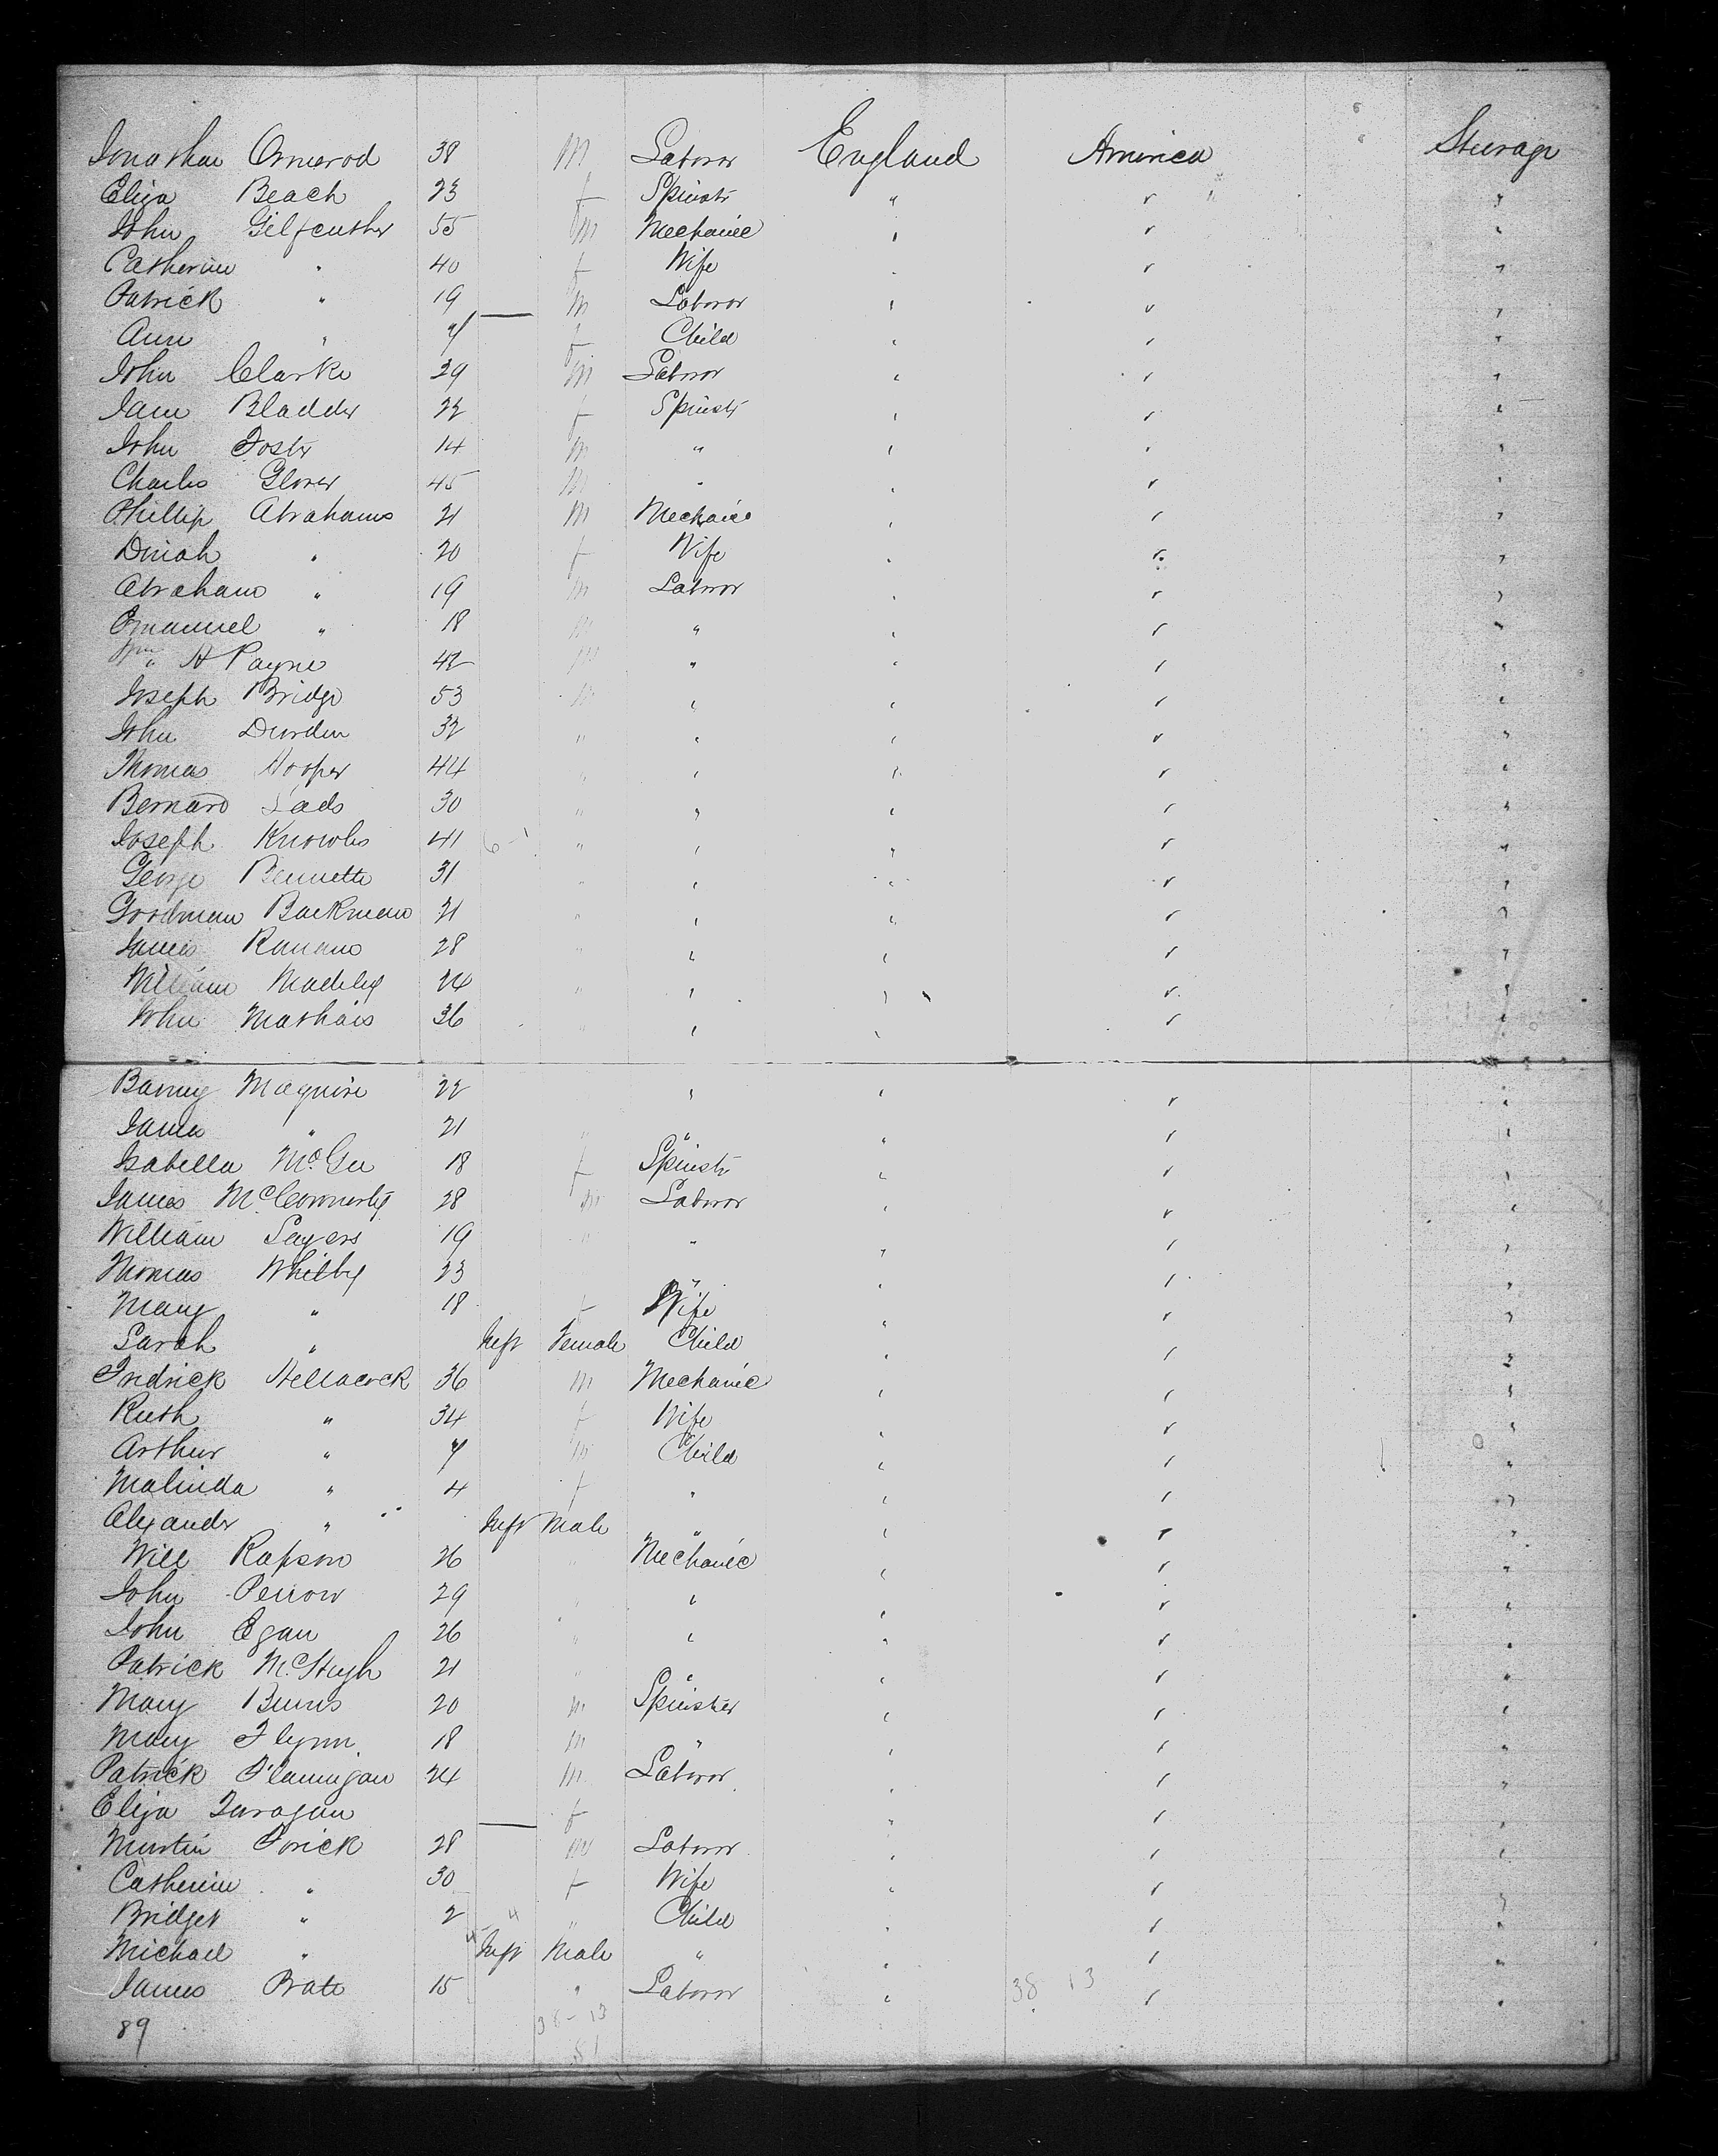 Jonathan Ormerod 38 M Laboror England America Steerage
Eliza Beach 23 f Spinstr " " "
John Gilfeuther 55 m Mechanic " " "
Catherine " 40 f Wife " " "
Patrick " 19 m Laboror " " "
Ann " 7 f Child " " "
John Clarke 29 m Laboror " " "
Jane Bladder 22 f Spinstr " " "
John Fostr 14 m " " " "
Charles Glover 45 m " " " "
Phillip Abrahams 21 m Mechanic " " "
Dinah " 20 f Wife " " "
Abraham " 19 m Laboror " " "
Emanuel " 18 m " " " "
Wm H Payne 42 m " " " "
Joseph Bridge 53 m " " " "
John Durden 32 " " " " "
Thomas Hooper 44 " " " " "
Bernard Eads 30 " " " " "
Joseph Knowles 41 6-1 " " " " "
George Bennette 31 " " " " "
Goodman Backman 21 " " " " "
James 28 " " " " "
William Madeley 24 " " " " "
John Mathais 36 " " " " "
Barney Maguire 22 " " " "
James " 21 " " " " "
Isabella McGee 18 f Spinstr " " "
James 28 m Laboror " " "
William Sayers 19 " " " " "
Thomas Whitby 23 " " " "
Mary " 18 f Wife " " "
Sarah " Inft Female Child " " "
Fredrick Hellacock 36 m Mechanic " " "
Ruth " 34 f Wife " " "
Arthur " 7 m Child " " "
Malinda " 4 f " " " "
Alexander " Inft Male " " " "
Will Rapson 26 " Mechanic " " "
John Perrow 29 " " " " "
John Egan 26 " " " " "
Patrick McHugh 21 " " " " "
Mary Burns 20 m Spinster " " "
Mary Flynn 18 m " " " "
Patrick Flannigan 24 m Laboror " " "
Eliza f " " "
Martin 28 m Laboror " " "
Catherine " 30 f Wife " " "
Bridget " 2 4 " Child " " "
Michael " Inft Male " " " "
James Prate 15 " Laboror " 38 13 " "
89 38-13
51